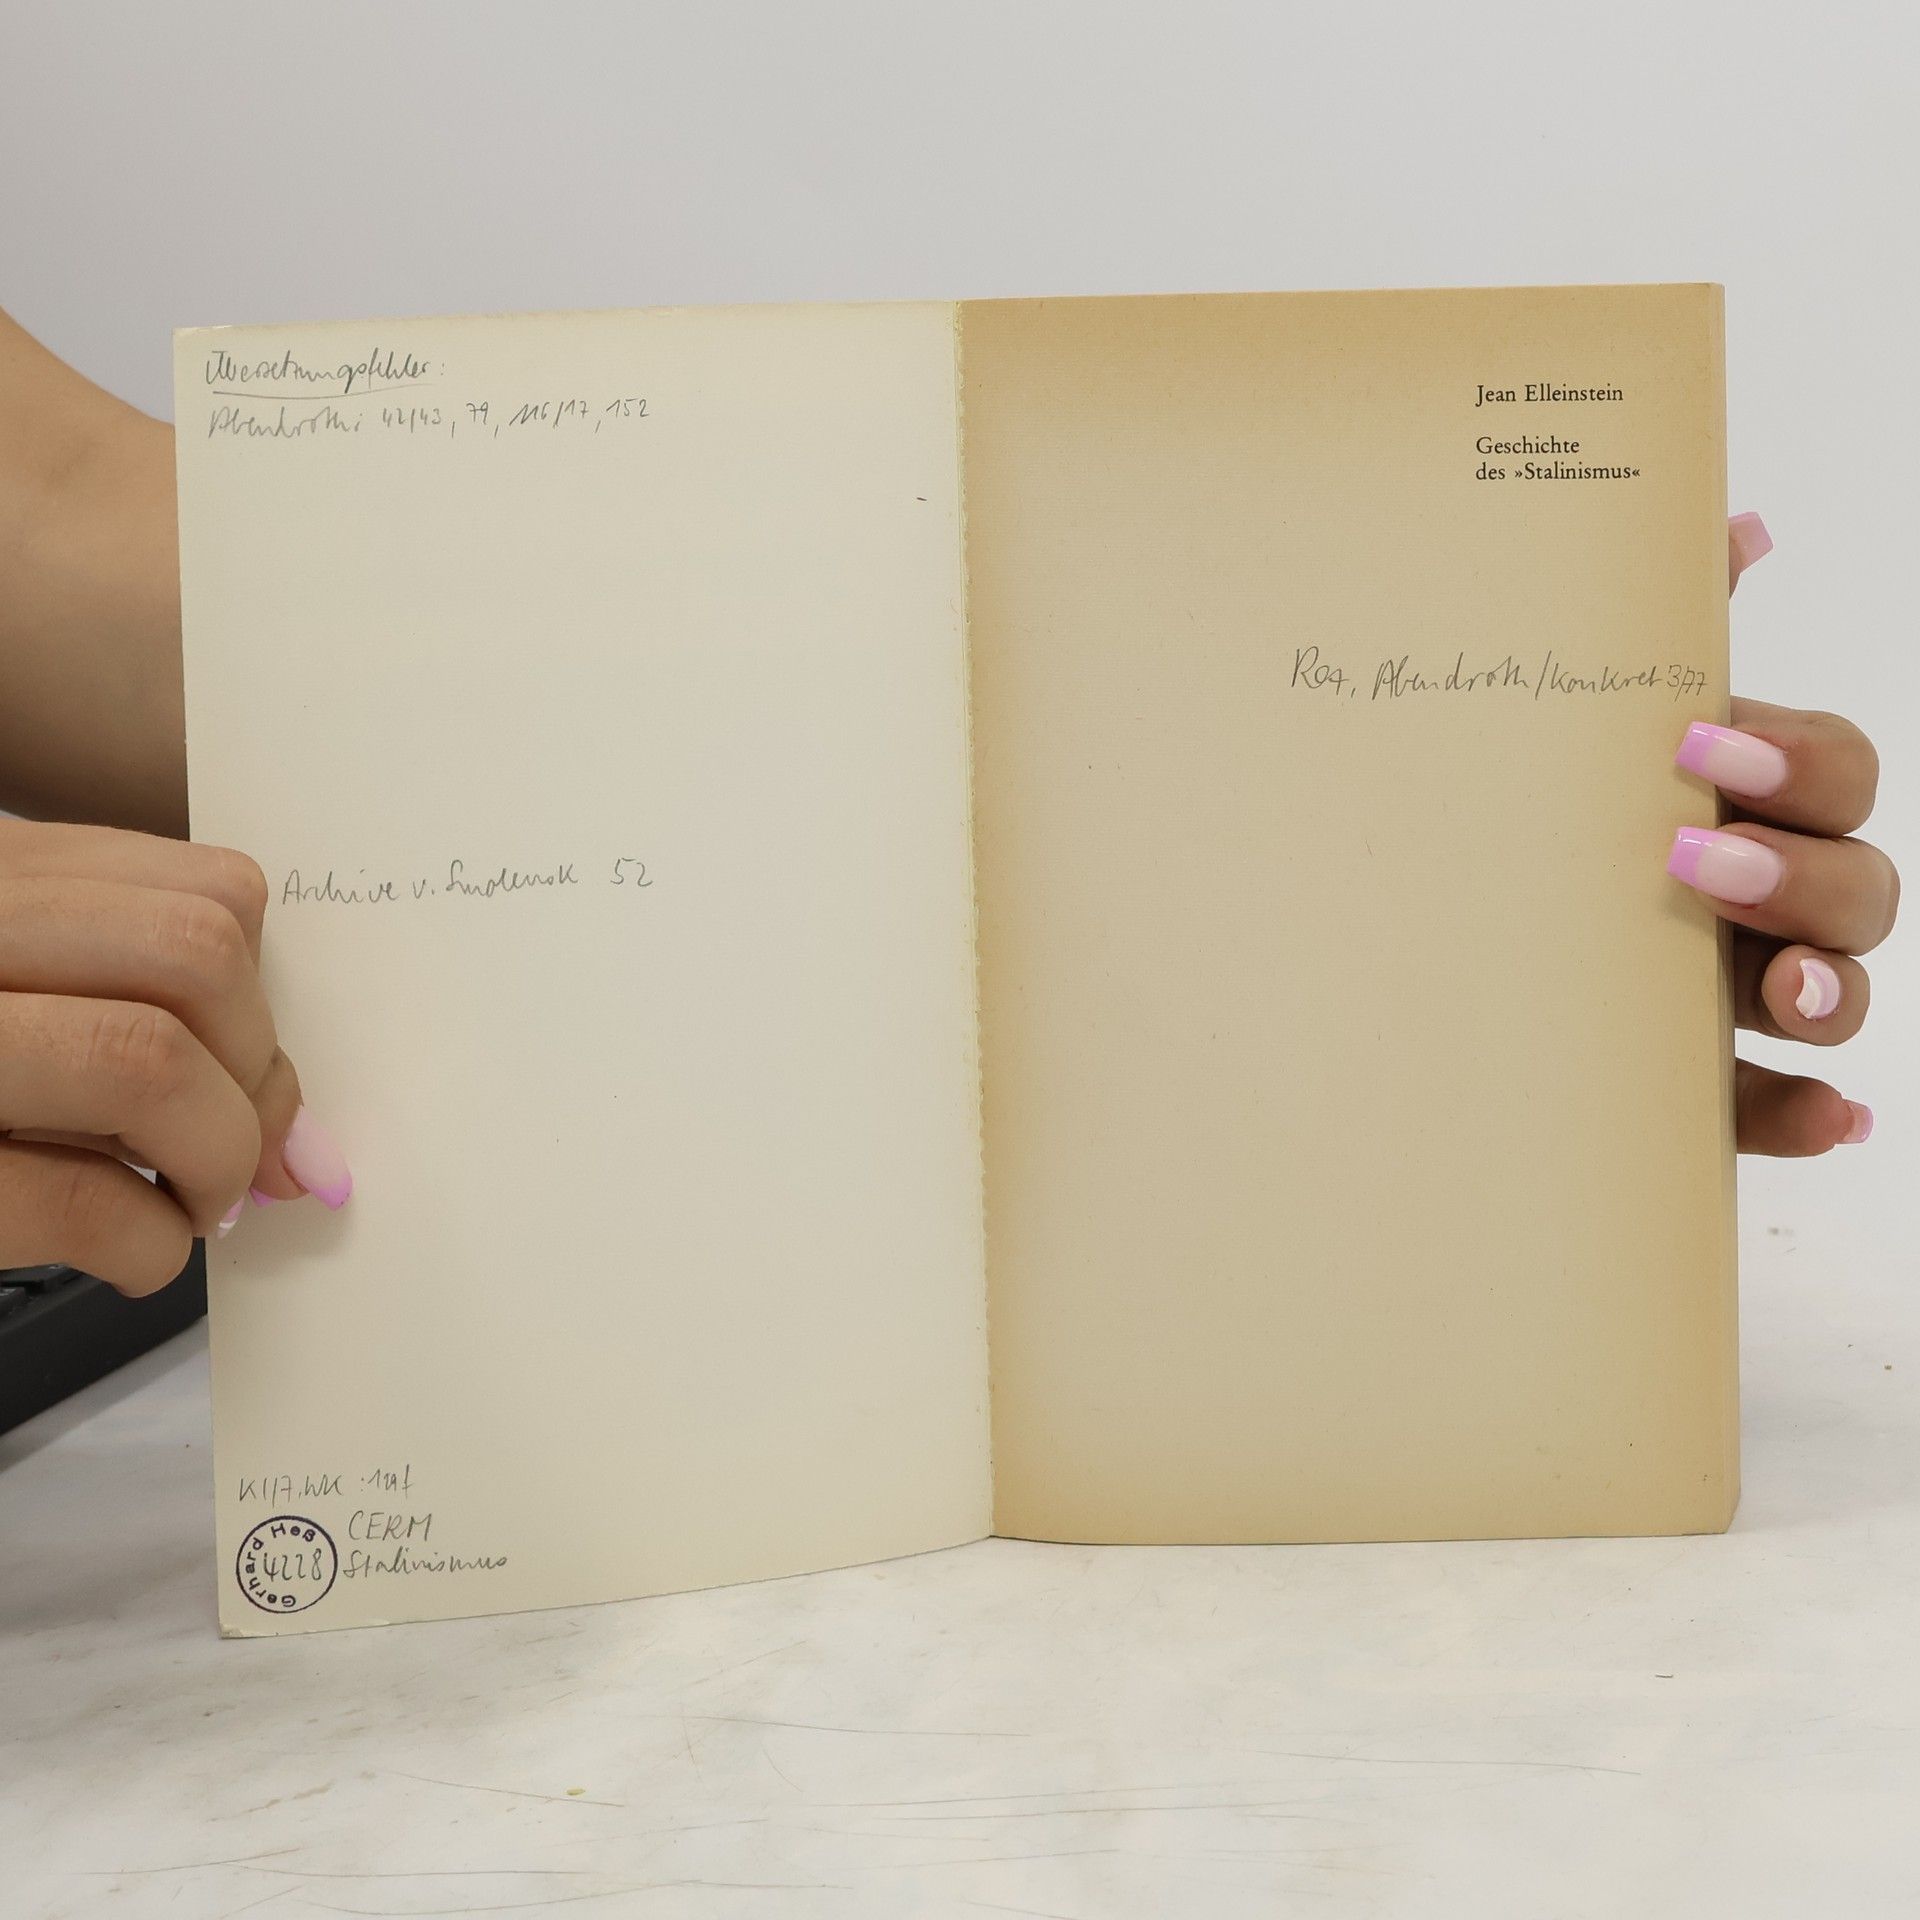 Übersetzungsfehler:
Abendroth: 42/43, 79, 116/17, 152
Archive v. Smolensk 52
: 129f
CERM
Stalinismus
Gerhard Heß
4228
Jean Elleinstein
Geschichte
des »Stalinismus«
Rez. Abendroth/Konkret 3/77